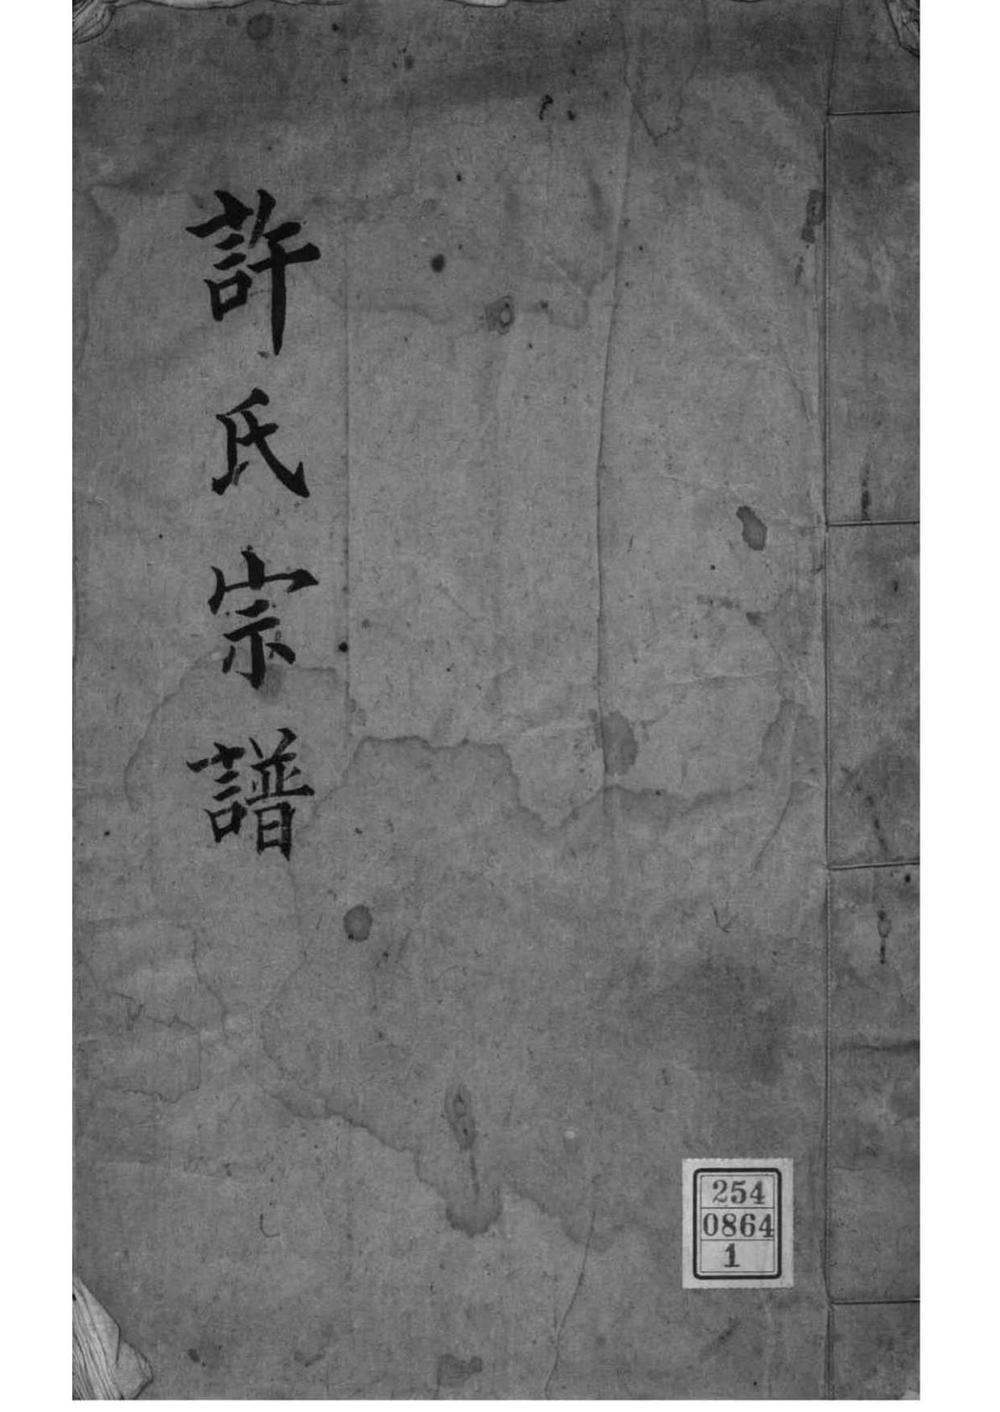 許氏宗譜
254
0864
1